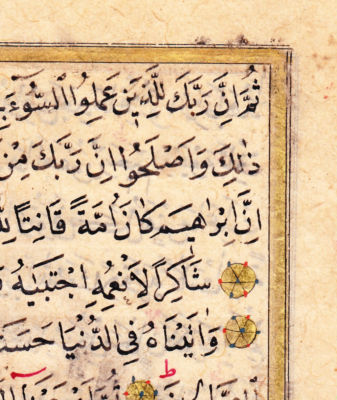 ثُمَّ اِنَّ رَبَّكَ لِلَّذٖينَ عَمِلُوا السُّوٓءَ
ذٰلِكَ وَاَصْلَحُوا اِنَّ رَبَّكَ مِنْ
اِنَّ اِبْرٰهٖيمَ كَانَ اُمَّةً قَانِتًا لِلّٰ
شَاكِرًا لِاَنْعُمِهِ اِجْتَبٰيهُ
وَاٰتَيْنَاهُ فِى الدُّنْيَا حَسَنَ
ط